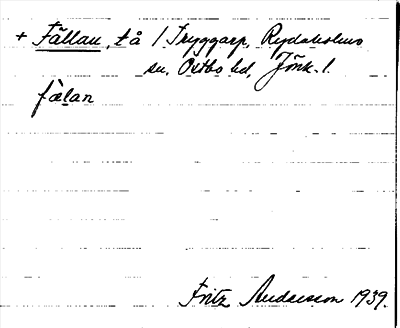 + Fällan, tå / Tryggarp, Rydaholms
sn. Östbo hd, Jönk. l.
fälan
Fritz Andersson 1939.